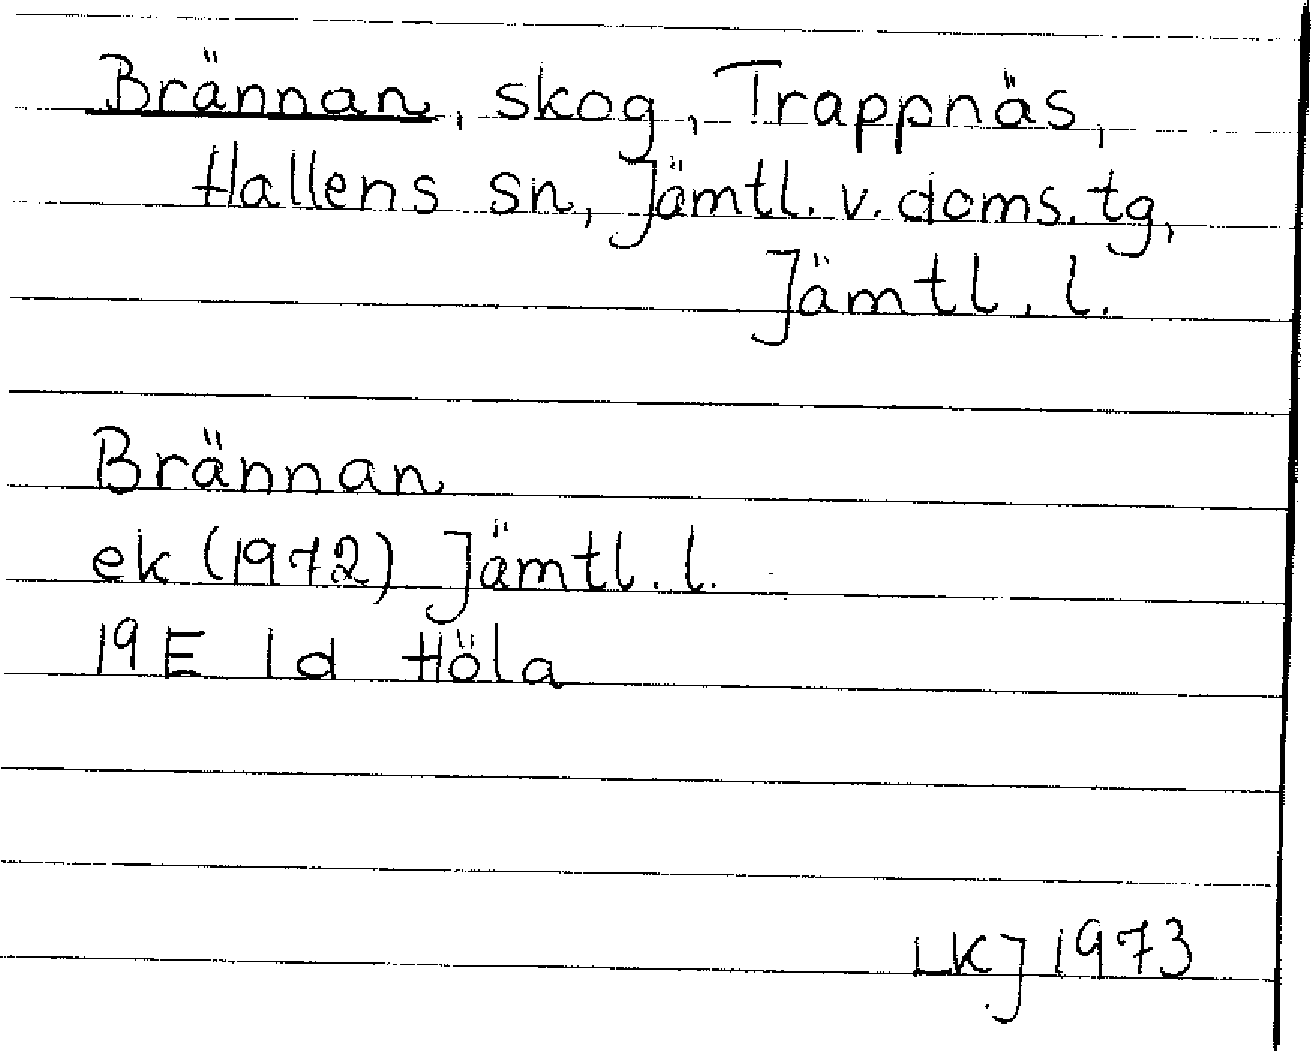 Brännan, skog, Trappnäs,
Hallens sn, Jämtl. v. doms. tg,
Jämtl. l.
Brännan
ek (1972) Jämtl. l.
19E 1d Höla
LKJ 1973